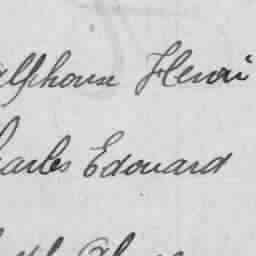 Alphonse Henri
Charles Edouard